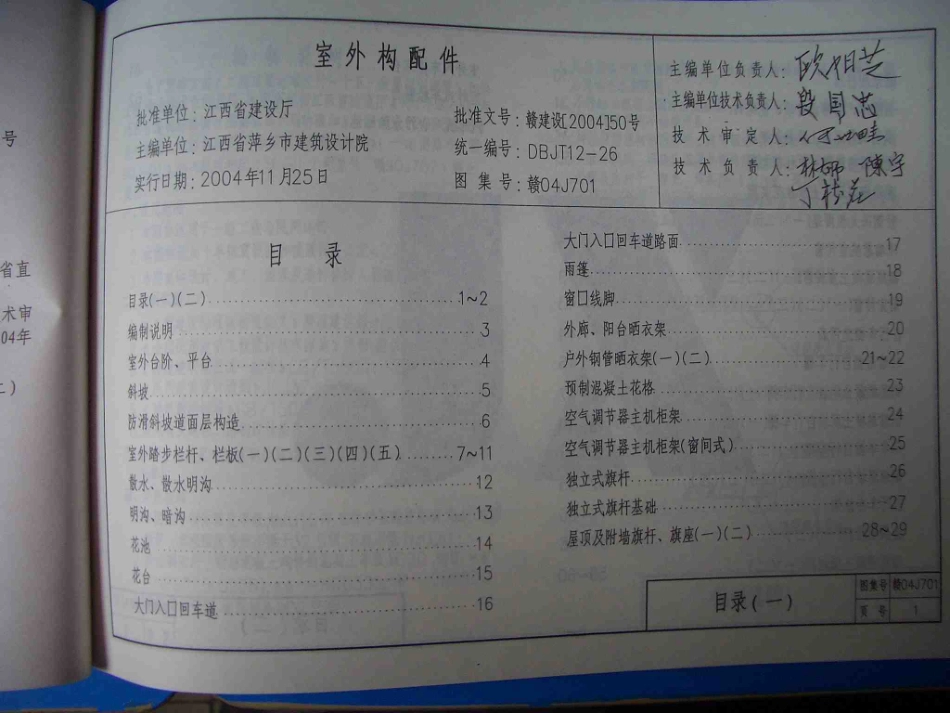 室外构配件
批准单位：江西省建设厅
主编单位：江西省萍乡市建筑设计院
实行日期：2004年11月25日
批准文号：赣建设[2004]50号
统一编号：DBJT12-26
图集号：赣04J701
主编单位负责人：
主编单位技术负责人：
技术审定人：
技术负责人：
目录
目录(一)(二) 1~2
编制说明 3
室外台阶、平台 4
斜坡 5
防滑斜坡道面层构造 6
室外踏步栏杆、栏板(一)(二)(三)(四)(五) 7~11
散水、散水明沟 12
明沟、暗沟 13
花池 14
花台 15
大门入口回车道 16
大门入口回车道路面 17
雨篷 18
窗口线脚 19
外廊、阳台晒衣架 20
户外钢管晒衣架(一)(二) 21~22
预制混凝土花格 23
空气调节器主机柜架 24
空气调节器主机柜架(窗间式) 25
独立式旗杆 26
独立式旗杆基础 27
屋顶及附墙旗杆、旗座(一)(二) 28~29
目录(一)
图集号 赣04J701
页号 1
号
省直
术审
04年